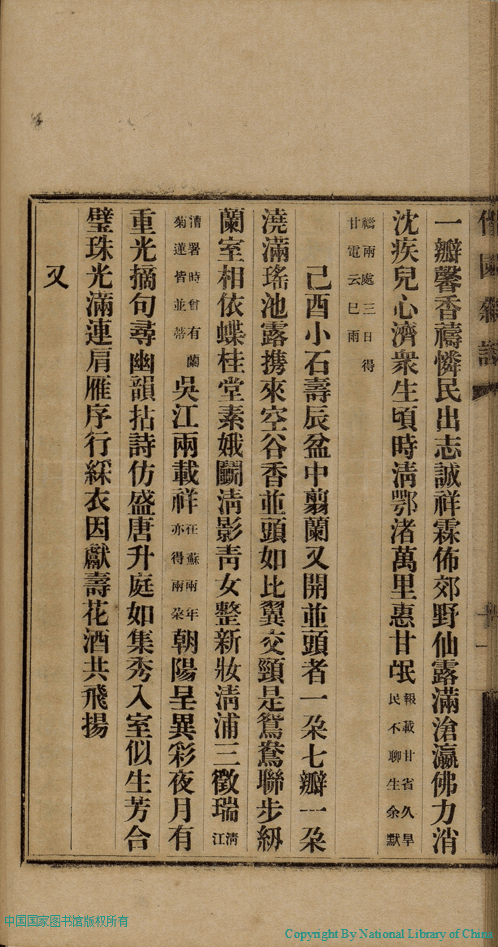 一瓣馨香禱憐民出志誠祥霖佈郊野仙露滿滄瀛佛力消
沈疾兒心濟衆生頃時淸鄂渚萬里惠甘氓報載甘省久旱民不聊生余默
禱雨處三日得甘電云已雨
己酉小石壽辰盆中翦蘭又開並頭者一朶七瓣一朶
澆滿瑤池露携來空谷香並頭如比翼交頸是鴛鴦聯步紉
蘭室相依蝶桂堂素娥鬭淸影靑女整新妝淸浦三徵瑞淸江
漕署時曾有蘭菊蓮皆並蒂吳江兩載祥在蘇兩年亦得兩朶朝陽呈異彩夜月有
重光摘句尋幽韻拈詩仿盛唐升庭如集秀入室似生芳合
璧珠光滿連肩雁序行綵衣因獻壽花酒共飛揚
又
中国国家图书馆版权所有
Copyright By National Library of China